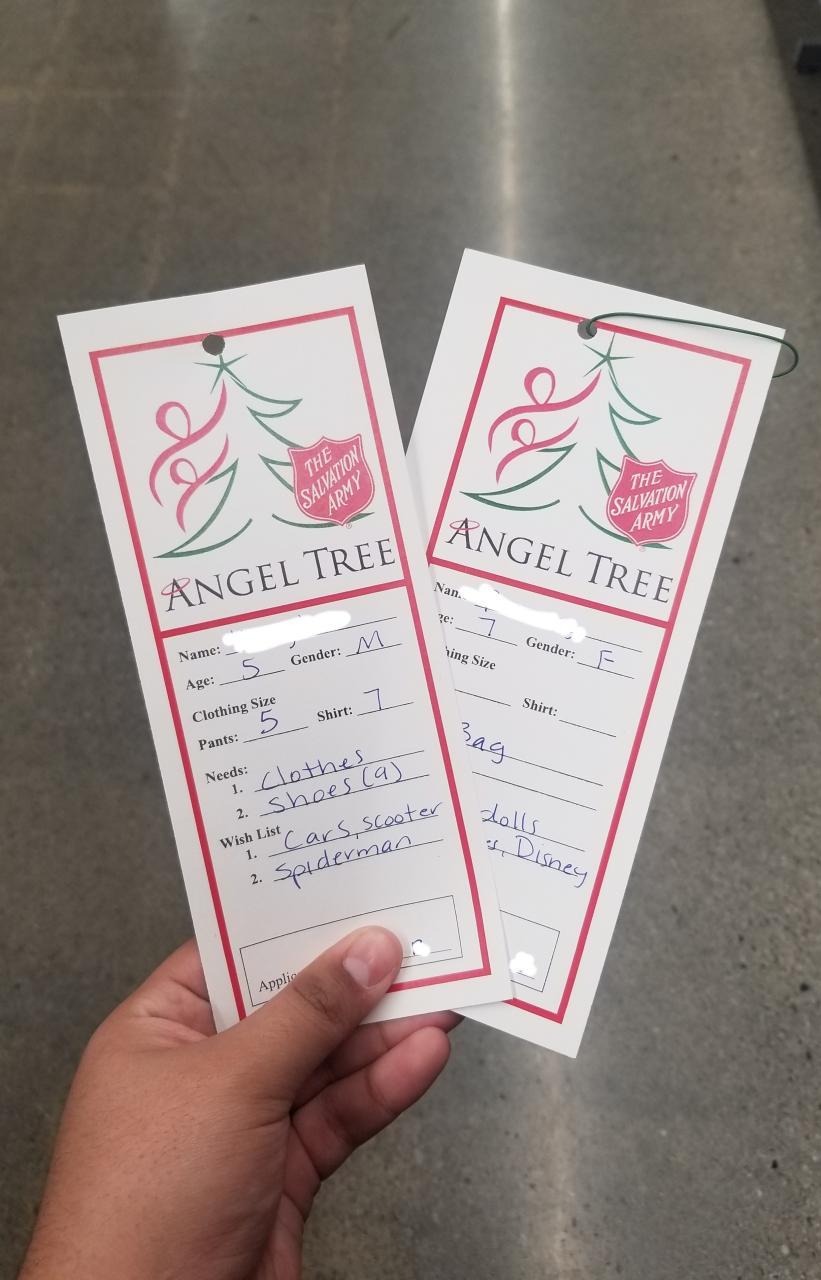 THE
SALVATION
ARMY
®
ANGEL TREE
Name:
Age: 5 Gender: M
Clothing Size
Pants: 5 Shirt: 7
Needs:
1. Clothes
2. Shoes (9)
Wish List
1. Cars, scooter
2. Spiderman
Applic
THE
SALVATION
ARMY
®
ANGEL TREE
Nam
ge: 7 Gender: F
hing Size
Shirt:
Bag
dolls
es, Disney